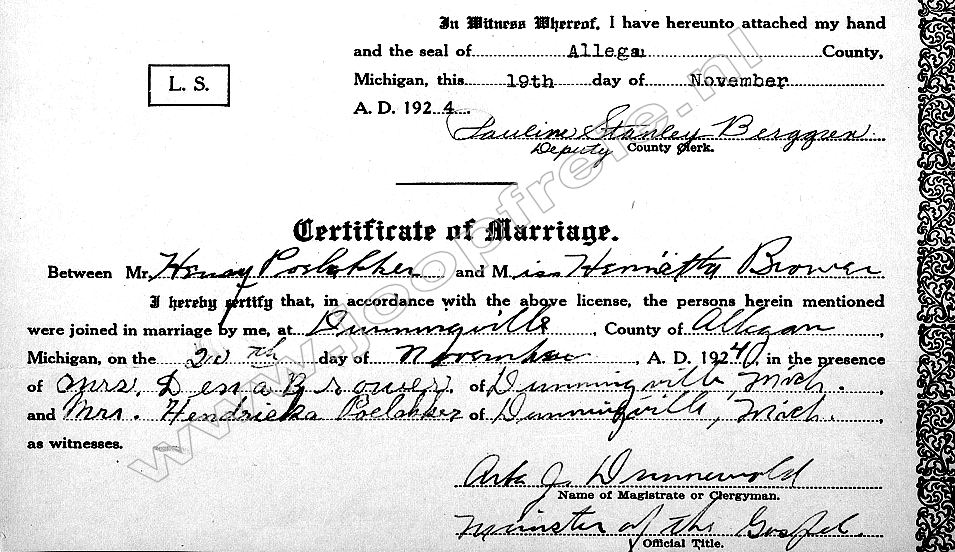 In Witness Whereof, I have hereunto attached my hand
and the seal of Allegan County,
L. S.
Michigan, this 19th day of November
A. D. 1924.
Pauline Stanley Berggren
Deputy County Clerk.
Certificate of Marriage.
Between Mr. Henry Poelakker and Miss Henrietta Brower
I hereby certify that, in accordance with the above license, the persons herein mentioned
were joined in marriage by me, at Dunningville, County of Allegan,
Michigan, on the 20th day of November, A. D. 1924 in the presence
of Mrs. Dena Brower. of Dunningville, Mich.
and Mrs. Hendrieka Poelakker of Dunningville, Mich.,
as witnesses.
J. Dunnewold
Name of Magistrate or Clergyman.
Minister of the Gospel.
Official Title.
www.joopfrele.nl